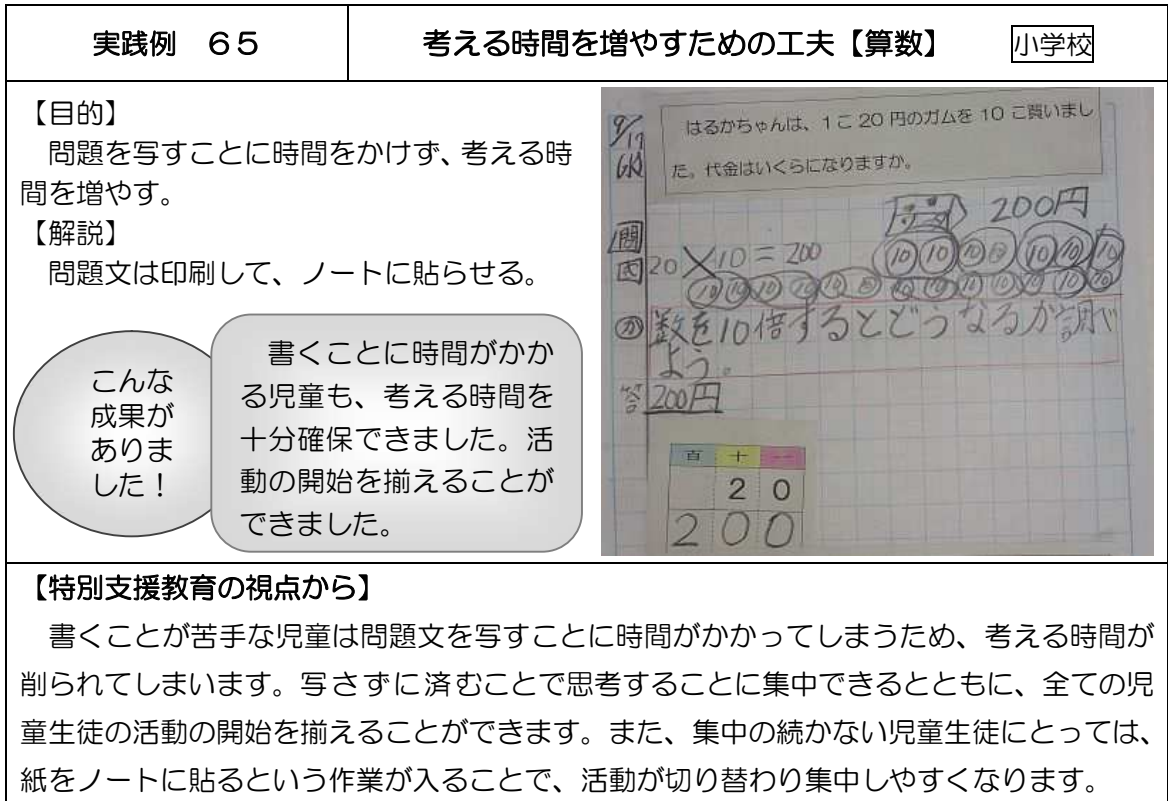 実践例　６５
考える時間を増やすための工夫【算数】
小学校
【目的】
　問題を写すことに時間をかけず、考える時
間を増やす。
【解説】
　問題文は印刷して、ノートに貼らせる。
こんな
成果が
ありま
した！
　書くことに時間がかか
る児童も、考える時間を
十分確保できました。活
動の開始を揃えることが
できました。
9/19
はるかちゃんは、1こ 20 円のガムを 10 こ買いまし
た。代金はいくらになりますか。
200円
問
式 20×10＝200
10 10 10 10 10 10 10
10 10 10 10 10 10 10 10 10 10 10 10 10
か 数を10倍するとどうなるか調べ
よう。
答 200円
百 十 一
2 0
2 0 0
【特別支援教育の視点から】
　書くことが苦手な児童は問題文を写すことに時間がかかってしまうため、考える時間が
削られてしまいます。写さずに済むことで思考することに集中できるとともに、全ての児
童生徒の活動の開始を揃えることができます。また、集中の続かない児童生徒にとっては、
紙をノートに貼るという作業が入ることで、活動が切り替わり集中しやすくなります。